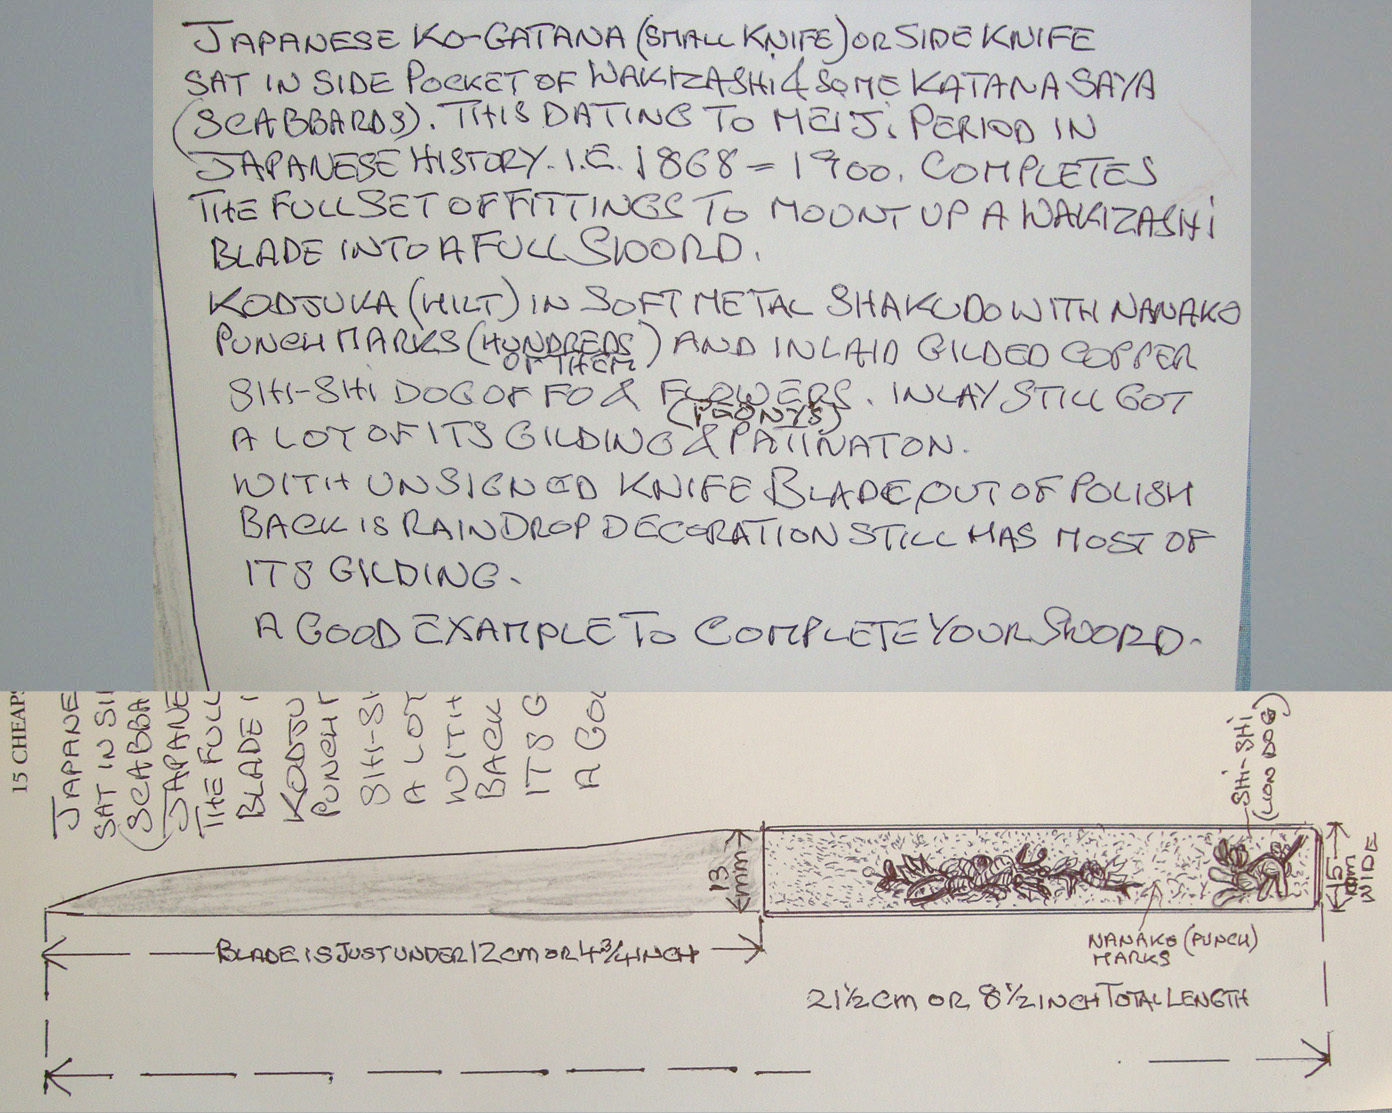 JAPANESE KO-GATANA (SMALL KNIFE) OR SIDE KNIFE
SAT IN SIDE POCKET OF WAKIZASHI & SOME KATANA SAYA
(SCABBARDS). THIS DATING TO MEIJI PERIOD IN
JAPANESE HISTORY. I.E. 1868 = 1900. COMPLETES
THE FULL SET OF FITTINGS TO MOUNT UP A WAKIZASHI
BLADE INTO A FULL SWORD.
KODJUKA (HILT) IN SOFT METAL SHAKUDO WITH NANAKO
PUNCH MARKS (HUNDREDS OF THEM) AND INLAID GILDED COPPER
SHI-SHI DOG OF FO & FLOWERS. INLAY STILL GOT
(PEONYS)
A LOT OF ITS GILDING & PATINATON.
WITH UNSIGNED KNIFE BLADE OUT OF POLISH
BACK IS RAINDROP DECORATION STILL HAS MOST OF
ITS GILDING.
A GOOD EXAMPLE TO COMPLETE YOUR SWORD.
15 CHEAPS
JAPANE
SAT IN SI
(SCABBA
JAPANE
THE FULL
BLADE I
KODJU
PUNCH M
SHI-SH
A LOT
WITH
BACK
ITS G
A GOO
SHI-SHI
(LION DOG)
13
mm
15
mm
WIDE
BLADE IS JUST UNDER 12cm OR 4 3/4 INCH
NANAKO (PUNCH)
MARKS
21 1/2 cm OR 8 1/2 INCH TOTAL LENGTH